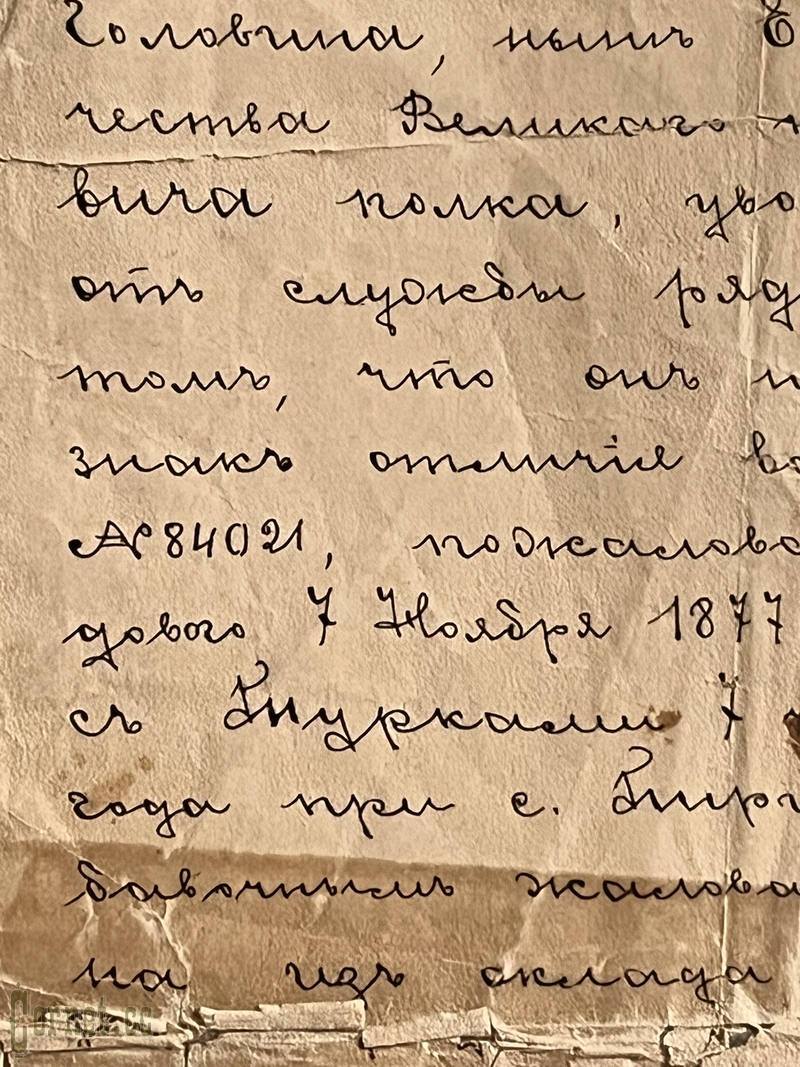 Головина, нынѣ Е
чества Великаго
вича полка, уво
отъ службы ряд
томъ, что онъ и
знакъ отличія во
№ 84021, пожалова
дового 7 Ноября 1877
съ Турками 7
года при с. Тирг
бавочнымъ жалова
на изъ оклада
Cornet.cc